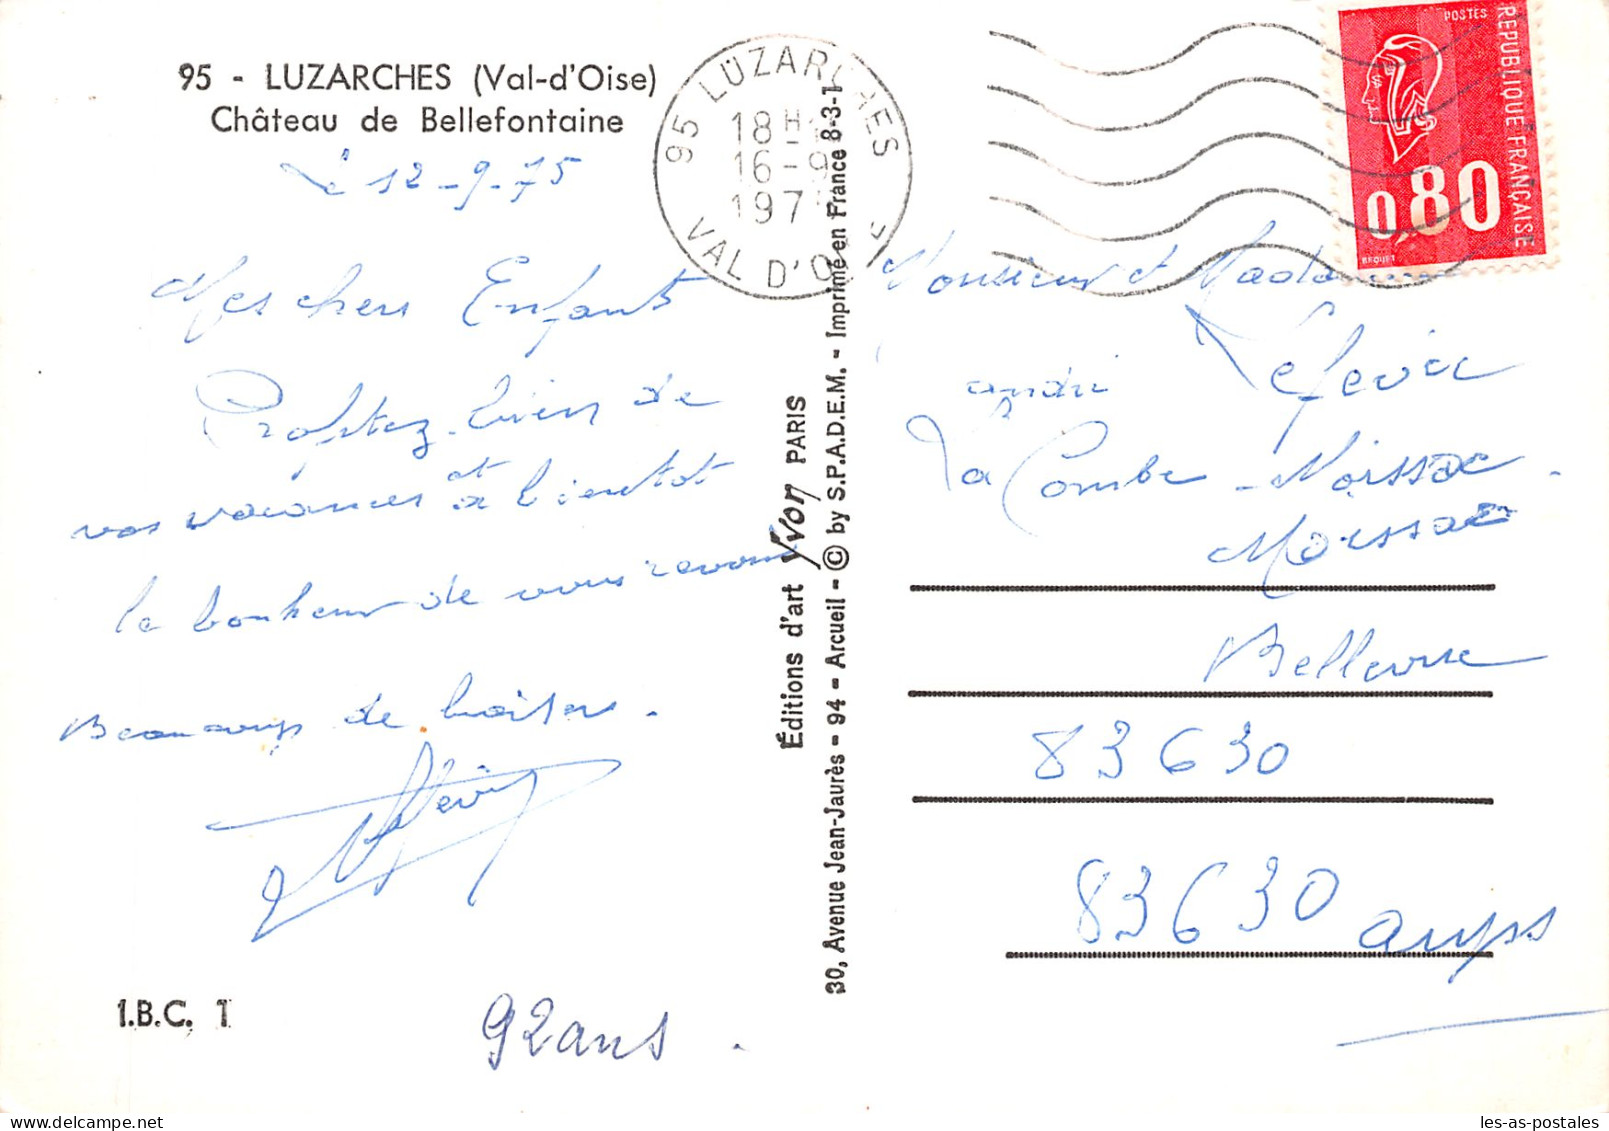 95 - LUZARCHES (Val-d'Oise)
Château de Bellefontaine
Le 12-9-75
Mes chers Enfants
Profitez bien de
vos vacances et à bientot
le bonheur de vous revoir
Beaucoup de baisers.
1.B.C. 1
92ans.
Éditions d'art Yvon PARIS
30, Avenue Jean-Jaurès - 94 - Arcueil - © by S.P.A.D.E.M. - Imprimé en France 8-3-1
95 LUZARCHES
18H
16-9
197
VAL D'O
POSTES
REPUBLIQUE FRANÇAISE
0,80
BEQUET
Monsieur et Madame
andré Lefevre
La Combe - Moissac -
Moissac
Bellevue
83630
83630 aups
les-as-postales